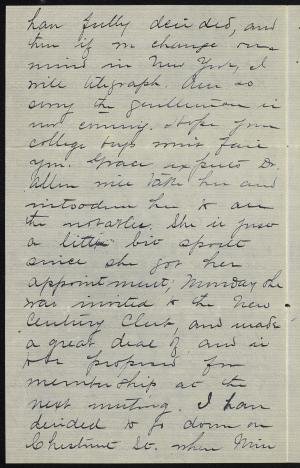 have fully decided, and
then if we change our
mind in New York, I
will telegraph. Am so
sorry the gentleman is
not coming. Hope your
college boys wont fail
you. Grace expects Dr.
Allen will take her and
introduce her to all
the notables. She is just
a little bit spoilt
since she got her
appointment; Monday she
was invited to the New
Century Club, and made
a great deal of and is
to be proposed for
membership at the
next meeting. I have
decided to go down on
Chestnut St. when Miss